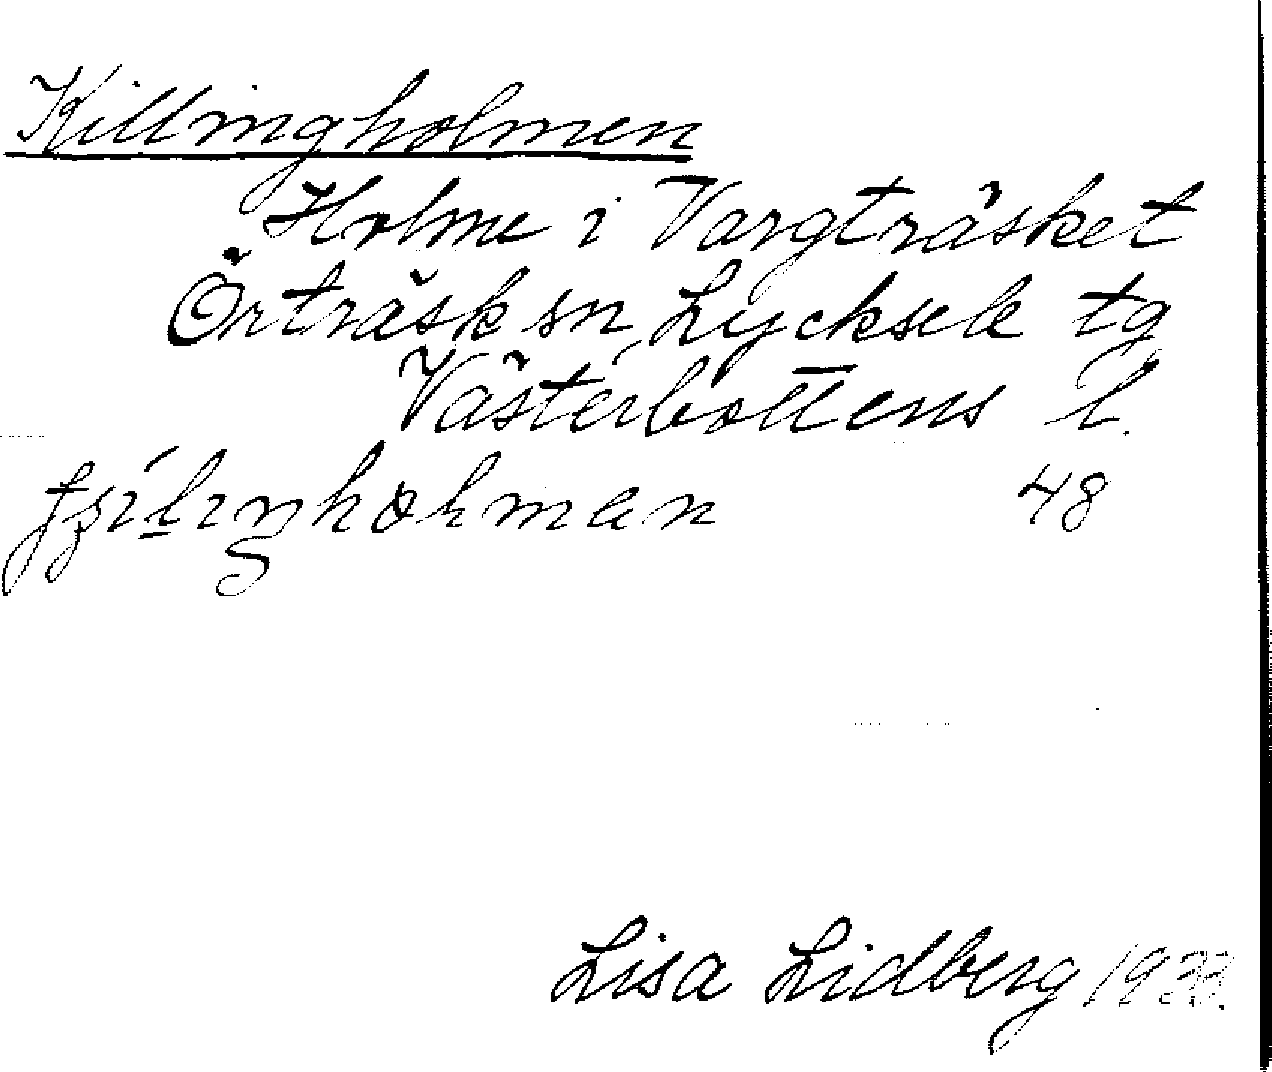 Killingholmen
Holme i Vargträsket
Örträsk sn, Lycksele tg
Västerbottens l.
48
Lisa Lidberg 1933.